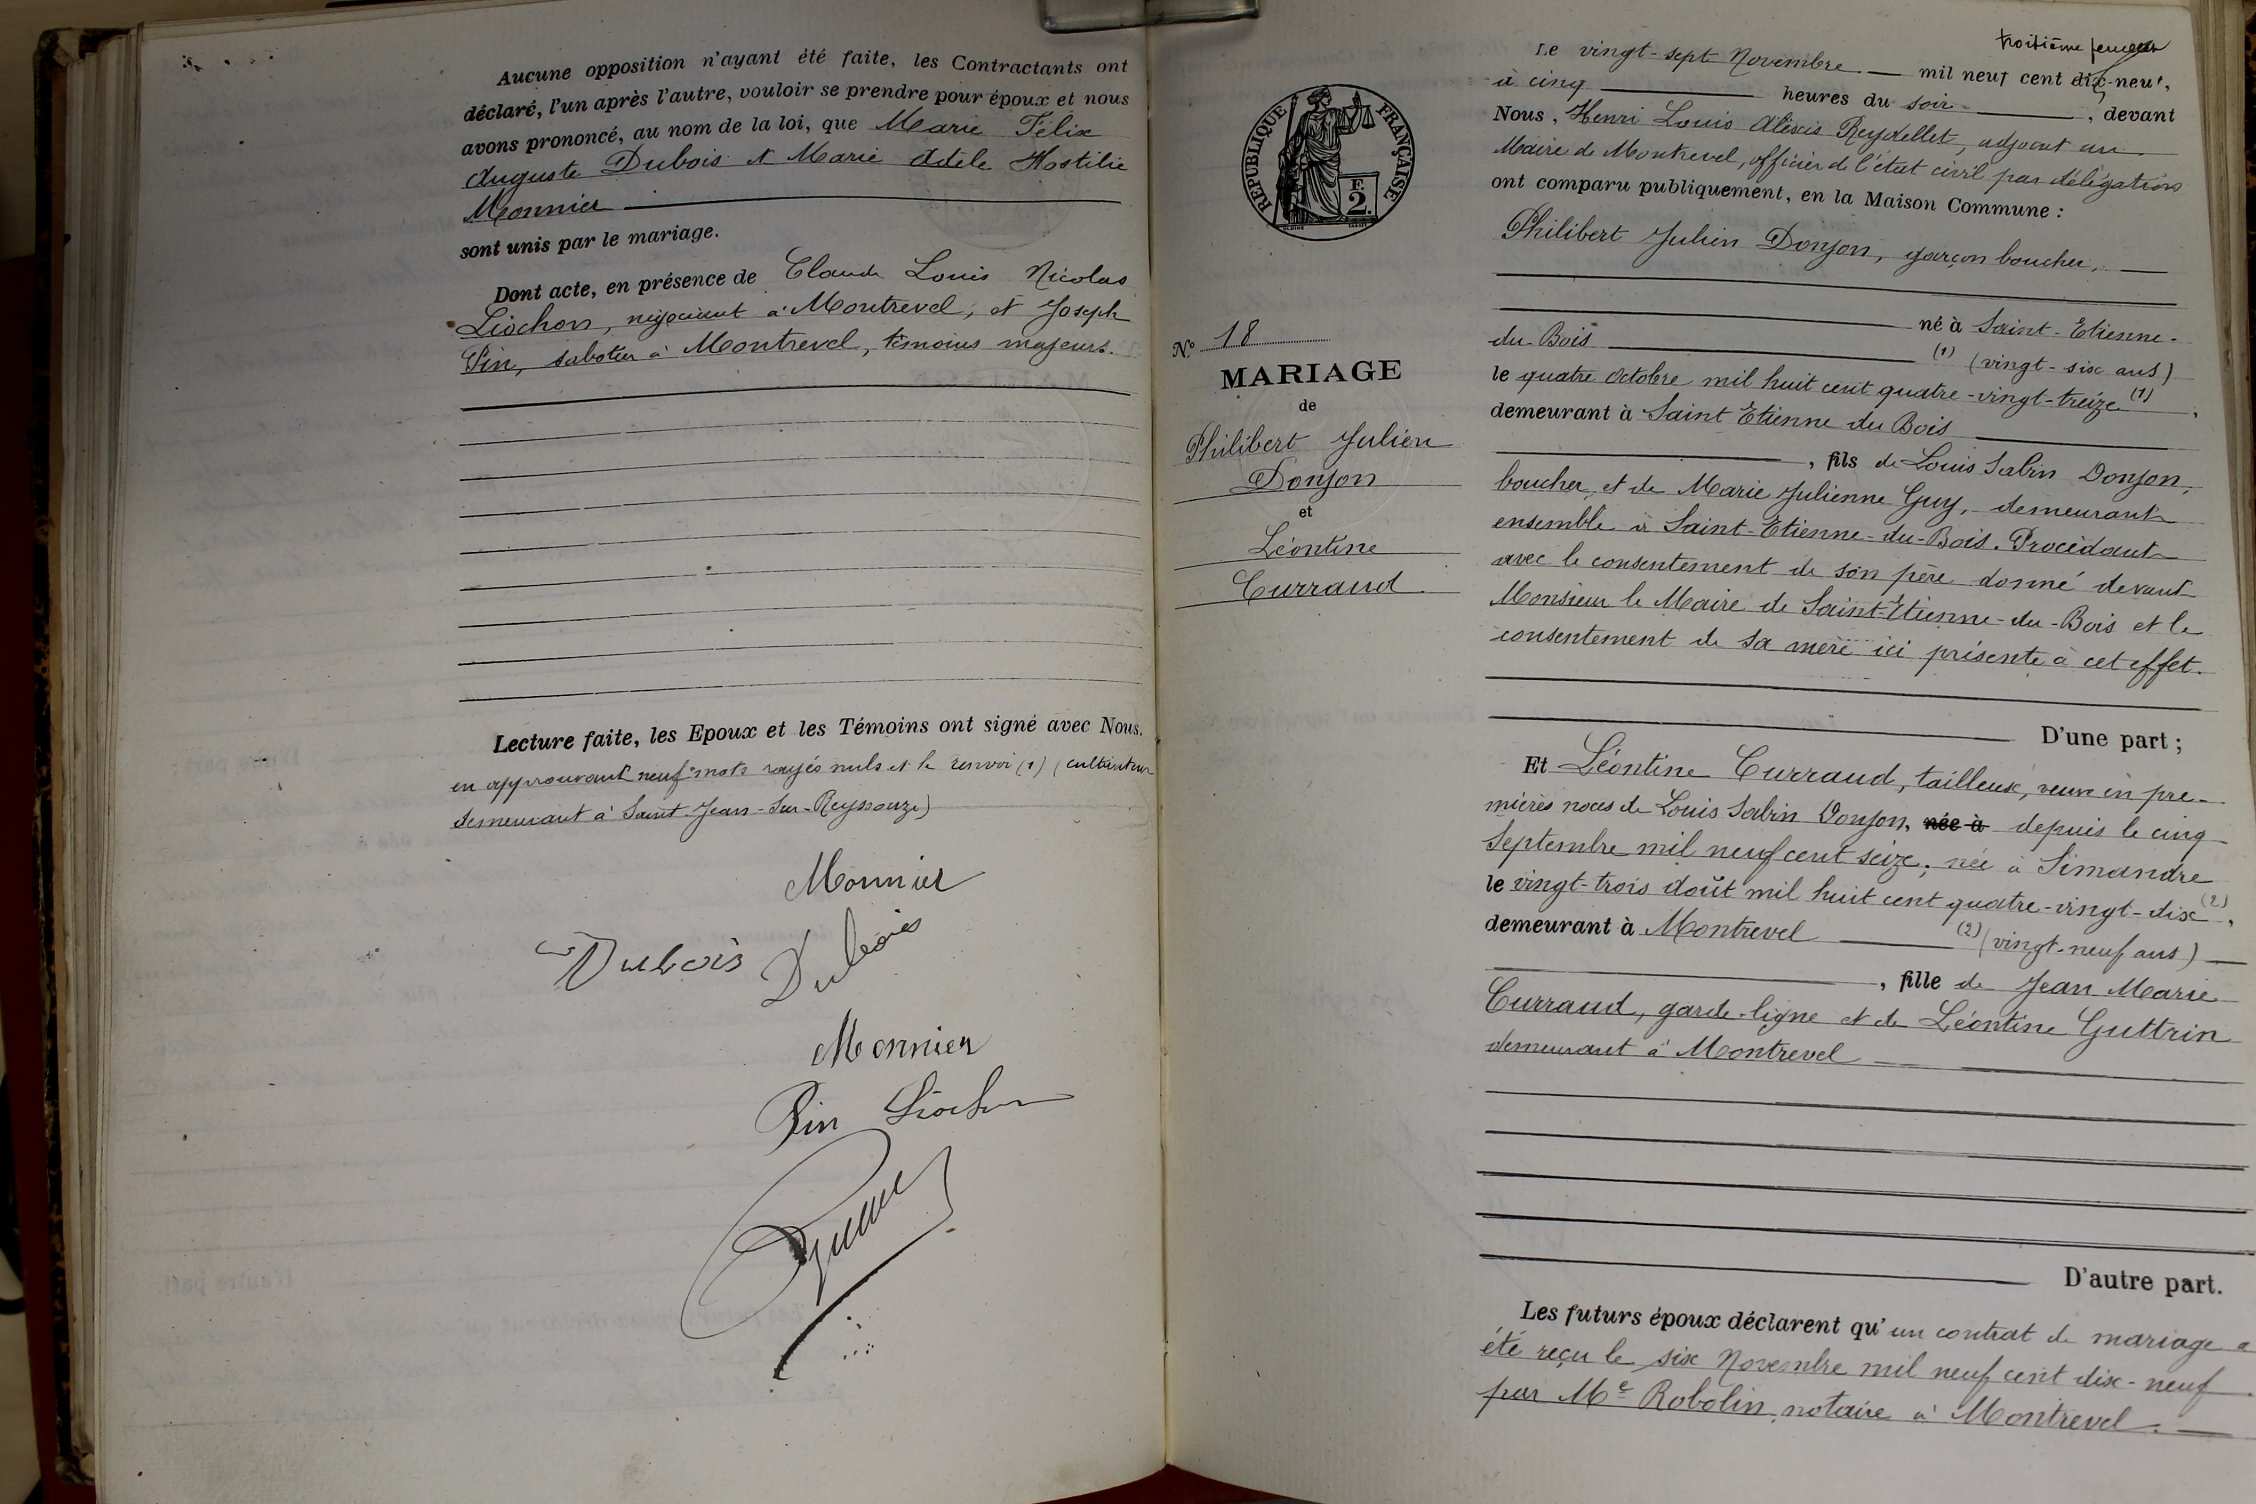 Aucune opposition n'ayant été faite, les Contractants ont
déclaré, l'un après l'autre, vouloir se prendre pour époux et nous
avons prononcé, au nom de la loi, que Marie Félix
Auguste Dubois et Marie Adèle Hostilie
Monnier
sont unis par le mariage.
Dont acte, en présence de Claude Louis Nicolas
Liochon, négociant à Montrevel, et Joseph
Pin, sabotier à Montrevel, témoins majeurs.
Lecture faite, les Epoux et les Témoins ont signé avec Nous.
en approuvant neuf mots rayés nuls et le renvoi (1) (cultivateur
demeurant à Saint-Jean-sur-Reyssouze)
Monnier
Dubois Dubois
Monnier
Pin Liochon
RÉPUBLIQUE FRANÇAISE
F.
2.
N° 18
MARIAGE
de
Philibert Julien
Donjon
et
Léontine
Curraud
troisième
Le vingt-sept Novembre mil neuf cent dix-neuf,
à cinq heures du soir, devant
Nous, Henri Louis Alexis Reydellet, adjoint au
Maire de Montrevel, officier de l'état civil par délégation
ont comparu publiquement, en la Maison Commune :
Philibert Julien Donjon, garçon boucher,
né à Saint-Etienne-
du-Bois (1) (vingt-six ans)
le quatre Octobre mil huit cent quatre-vingt-treize (1),
demeurant à Saint Etienne du Bois
, fils de Louis Sabin Donjon,
boucher, et de Marie Julienne Guy, demeurant
ensemble à Saint-Etienne-du-Bois. Procédant
avec le consentement de son père donné devant
Monsieur le Maire de Saint-Etienne-du-Bois et le
consentement de sa mère ici présente à cet effet.
D'une part ;
Et Léontine Curraud, tailleuse, veuve en pre-
mières noces de Louis Sabin Donjon, née à depuis le cinq
Septembre mil neuf cent seize, née à Simandre
le vingt-trois Août mil huit cent quatre-vingt-dix (2),
demeurant à Montrevel (2) (vingt-neuf ans)
, fille de Jean Marie
Curraud, garde-ligne et de Léontine Guttrin
demeurant à Montrevel
D'autre part.
Les futurs époux déclarent qu'un contrat de mariage a
été reçu le six Novembre mil neuf cent dix-neuf
par Me Robolin, notaire à Montrevel.